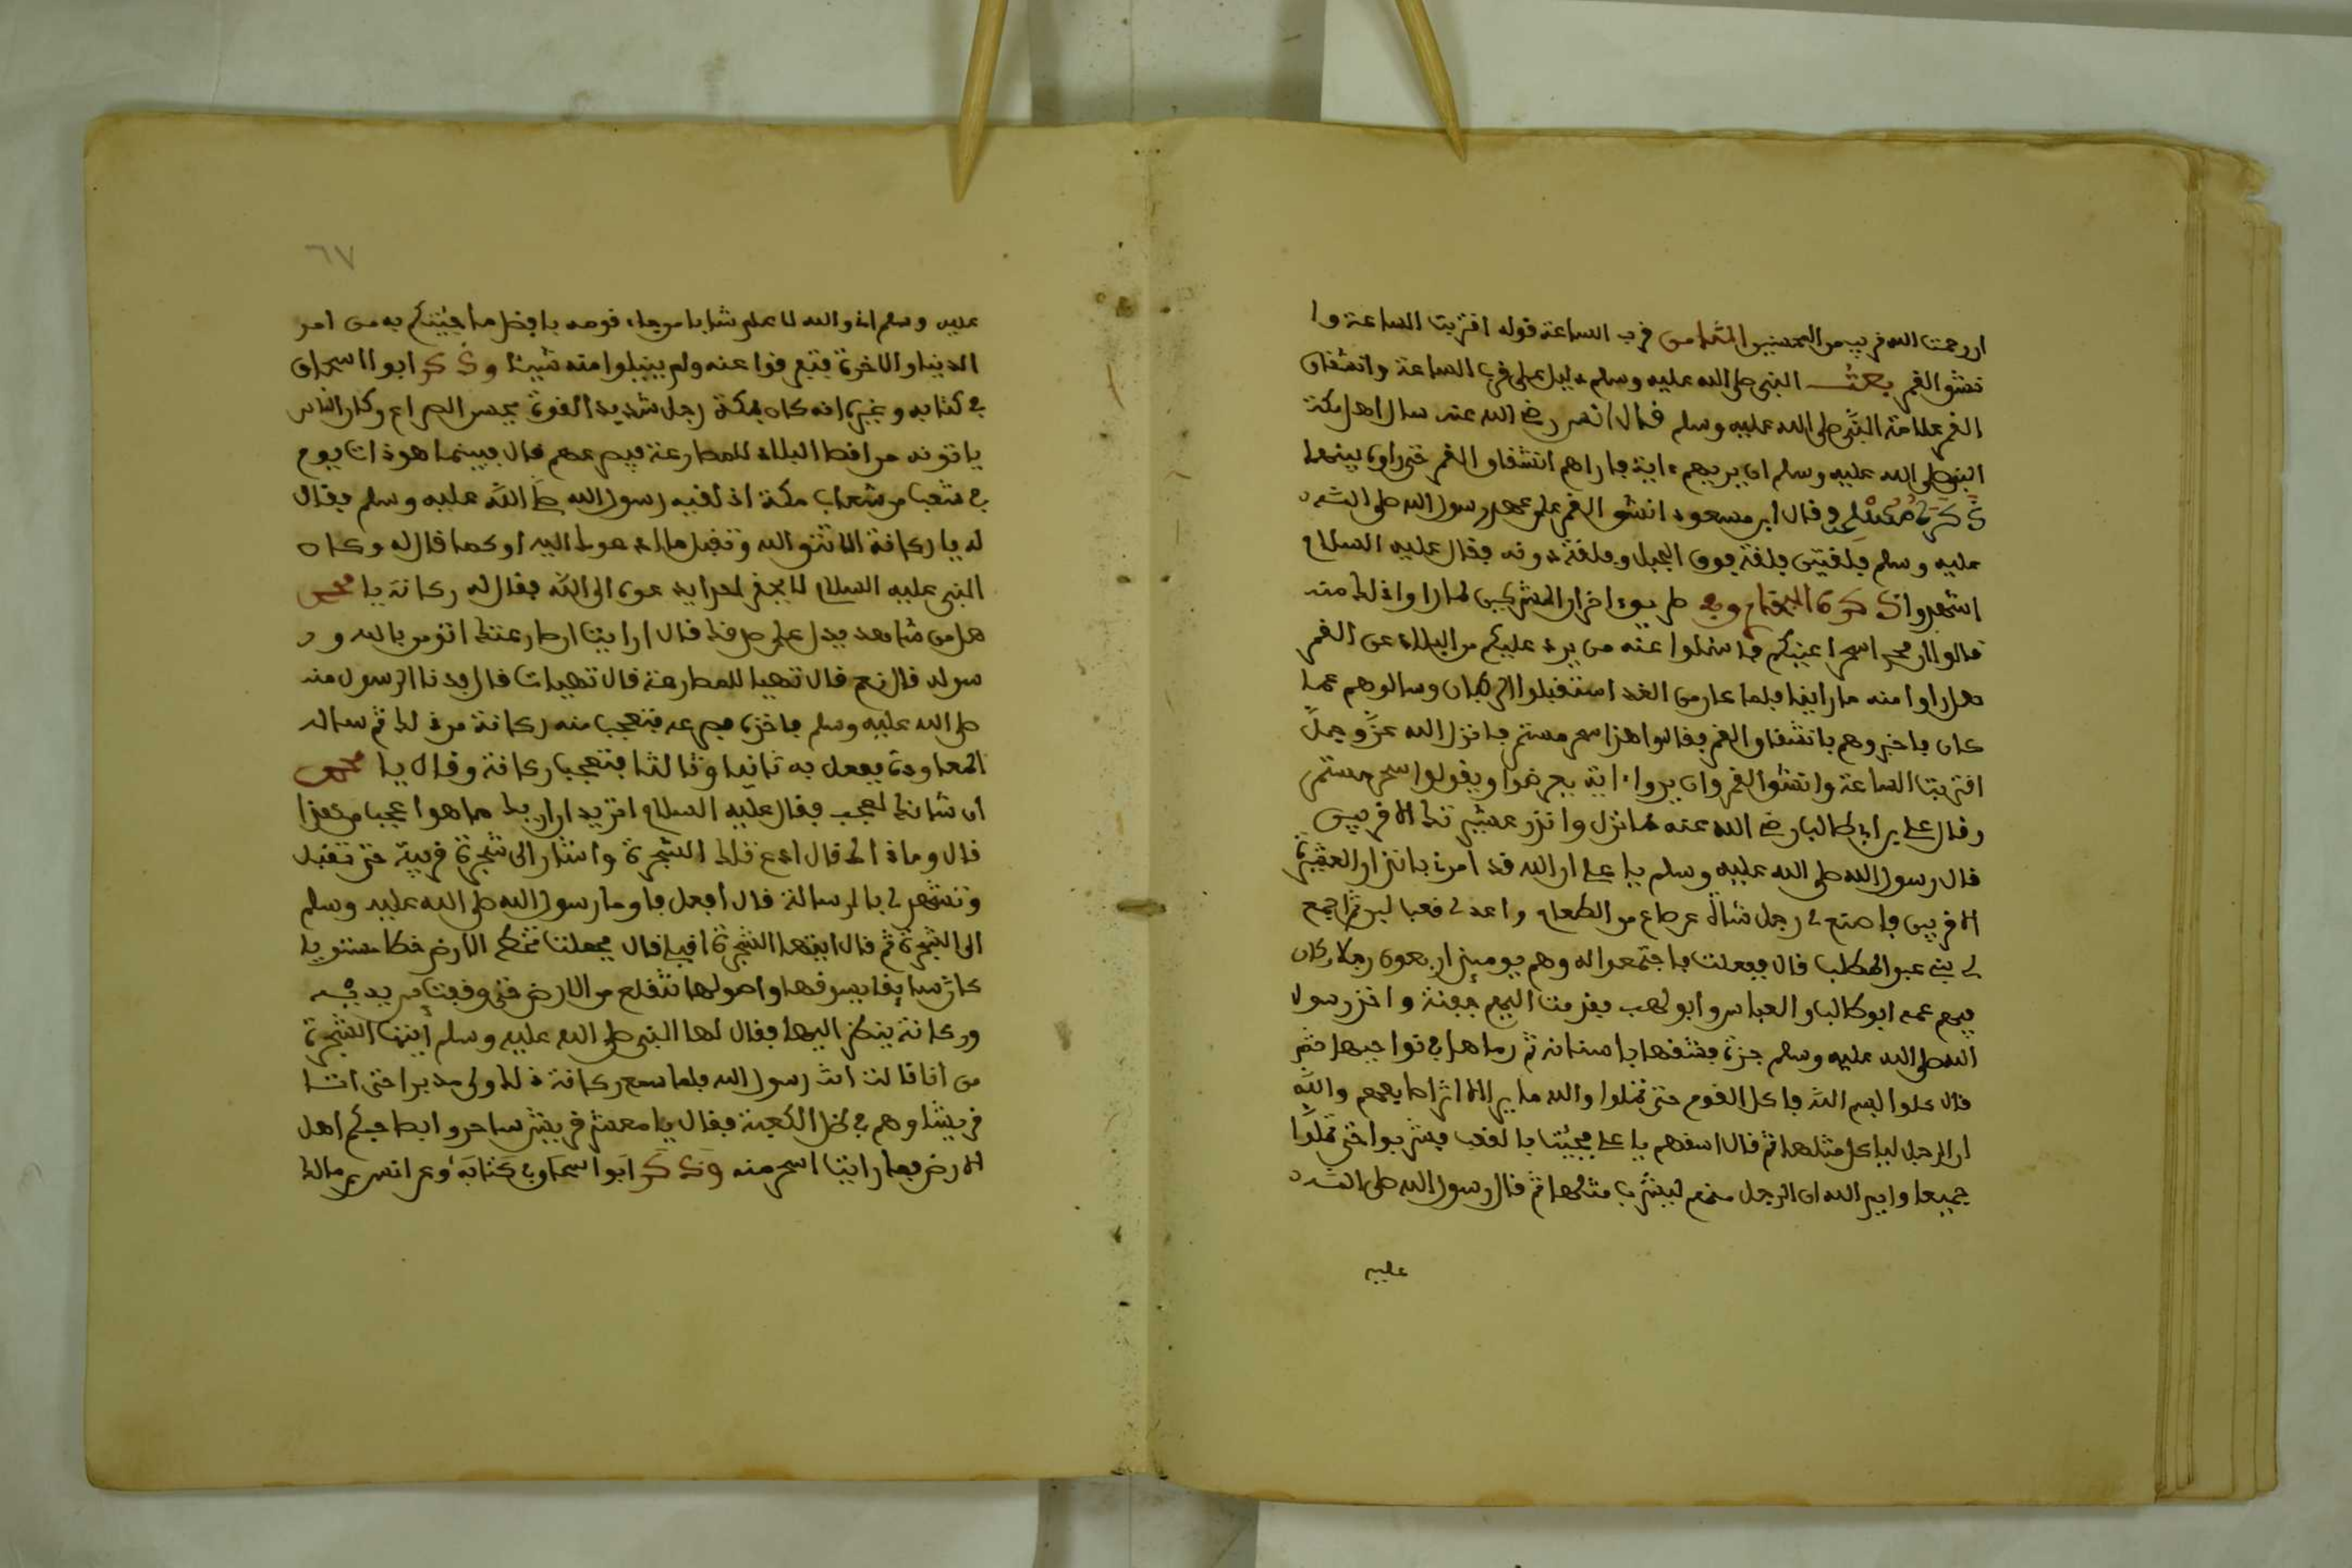 ان رحمت الله قريب من المحسنين الثامن قرب الساعة قوله اقتربت الساعة وا
نشق القمر بعث النبي صلى الله عليه وسلم دليل على قرب الساعة وانشقاق
القمر علامة النبي صلى الله عليه وسلم قال انس رضي الله عنه سال اهل مكة
النبي صلى الله عليه وسلم ان يريهم ءاية فاراهم انشقاق القمر حتى راوه بينهما
ذكره مسلم وقال ابن مسعود انشق القمر على عهد رسول الله صلى الله
عليه وسلم فلقتين فلقة فوق الجبل وفلقة دونه فقال عليه السلام
اشهدوا ذكره البخاري وفي طريق اخر ان المشركين لما راوا ذلك منه
قالوا ان محمد اسحر اعينكم فاسئلوا عنه من يرد عليكم من البلاد عن القمر
هل راوا منه ما راينا فلما كان من الغد استقبلوا الركبان وسالوهم عما
كان فاخبروهم بانشقاق القمر فقالوا هذا سحر مستمر فانزل الله عز وجل
اقتربت الساعة وانشق القمر وان يروا ءاية يعرضوا ويقولوا سحر مستمر
وقال علي بن ابي طالب رضي الله عنه لما نزل وانذر عشيرتك الاقربين
قال رسول الله صلى الله عليه وسلم يا علي ان الله قد امرني بانذار العشيرة
الاقربين فاصنع لي رجل شاة عن صاع من الطعام واعد لي قعبا لبن ثم اجمع
لي بني عبد المطلب قال ففعلت فاجتمعوا له وهم يومئذ اربعون رجلا وكان
فيهم عمه ابو طالب والعباس وابو لهب فقدمت اليهم جفنة واخذ رسول
الله صلى الله عليه وسلم جزة فشقها باسنانه ثم رماها في نواحيها ثم
قال كلوا بسم الله فاكل القوم حتى تملوا والله ما يرى الا اثر اصابعهم والله
ان الرجل لياكل مثلها ثم قال اسقهم يا علي فجئت بالقعب فشربوا حتى تملوا
جميعا وايم الله ان الرجل منهم ليشرب مثلها ثم قال رسول الله صلى الله
عليه
٦٧
عليه وسلم اني والله لا علم شابا من جاء قومه بافضل ما جئتكم به من امر
الدنيا والاخرة فتفرقوا عنه ولم يقبلوا منه شيئا وذكر ابوا اسحاق
في كتابه وغيره انه كان بمكة رجل شديد القوة يحسن الصراع وكان الناس
ياتونه من اقطا البلاد للمصارعة فيصرعهم قال فبينما هو ذات يوم
في شعب من شعاب مكة اذ لقيه رسول الله صلى الله عليه وسلم فقال
له يا ركانة الا تتق الله وتقبل ما ادعوك اليه او كما قال له وكان
النبي عليه السلام لا يحقر احدا يدعوه الى الله فقال له ركانة يا محمد
هل من شاهد يدل على صدقك قال ارايت ان صارعتك اتؤمن بالله ور
سوله قال نعم قال تهيا للمصارعة قال تهيات قال فدنا الرسول منه
صلى الله عليه وسلم فاخذه فصرعه فتعجب منه ركانة من ذلك ثم ساله
المعاودة ففعل به ثانيا وثالثا فتعجب ركانة وقال يا محمد
ان شانك لعجب فقال عليه السلام اتريد ان اريك ما هو اعجب من هذا
قال وما ذاك قال ادع تلك الشجرة واشار الى شجرة قريبة حتى تقبل
وتشهد لي بالرسالة قال افعل فاوما رسول الله صلى الله عليه وسلم
الى الشجرة ثم قال ايتها الشجرة اقبلي قال فجعلت تخط الارض خطا مستويا
كان سايقا يسوقها واصولها تتقلع من الارض حتى وقفت بين يديه
وركانة ينظر اليها فقال لها النبي صلى الله عليه وسلم ايتها الشجرة
من انا قالت انت رسول الله فلما سمع ركانة ذلك ولى مدبرا حتى اتا
قريشا وهم في ظل الكعبة فقال يا معشر قريش ساحروا بصاحبكم اهل
الارض فما رايت اسحر منه وذكر ابوا اسحاق في كتابه وعن انس بن مالك